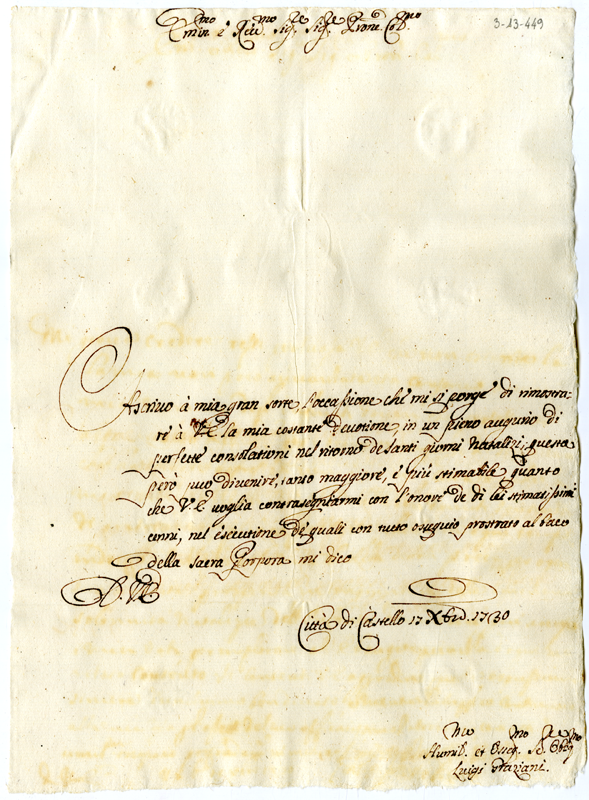 Emin.mo e Rev.mo Sig.re Sig.re Prone Col.mo
3-13-449
Ascrivo à mia gran sorte, l'occassione che mi si porge di rimostra-
re à V.E. la mia costante devotione, in un pieno augurio di
perfette consolationi nel ritorno de Santi giorni Natalizj, questa
però puo divenire, tanto maggiore, e più stimabile quanto
che V.E. voglia contrasegniarmi con l'onore de di lei stimatissimi
cenni, nel esecutione de quali con tutto osequio prostrato al bacio
della sacra Porpora mi dico
D. V.E.
Città di Castello 17 Xbre 1730
Humil.mo et Osseq.mo Se.re Obbg.mo
Luigi Graziani.